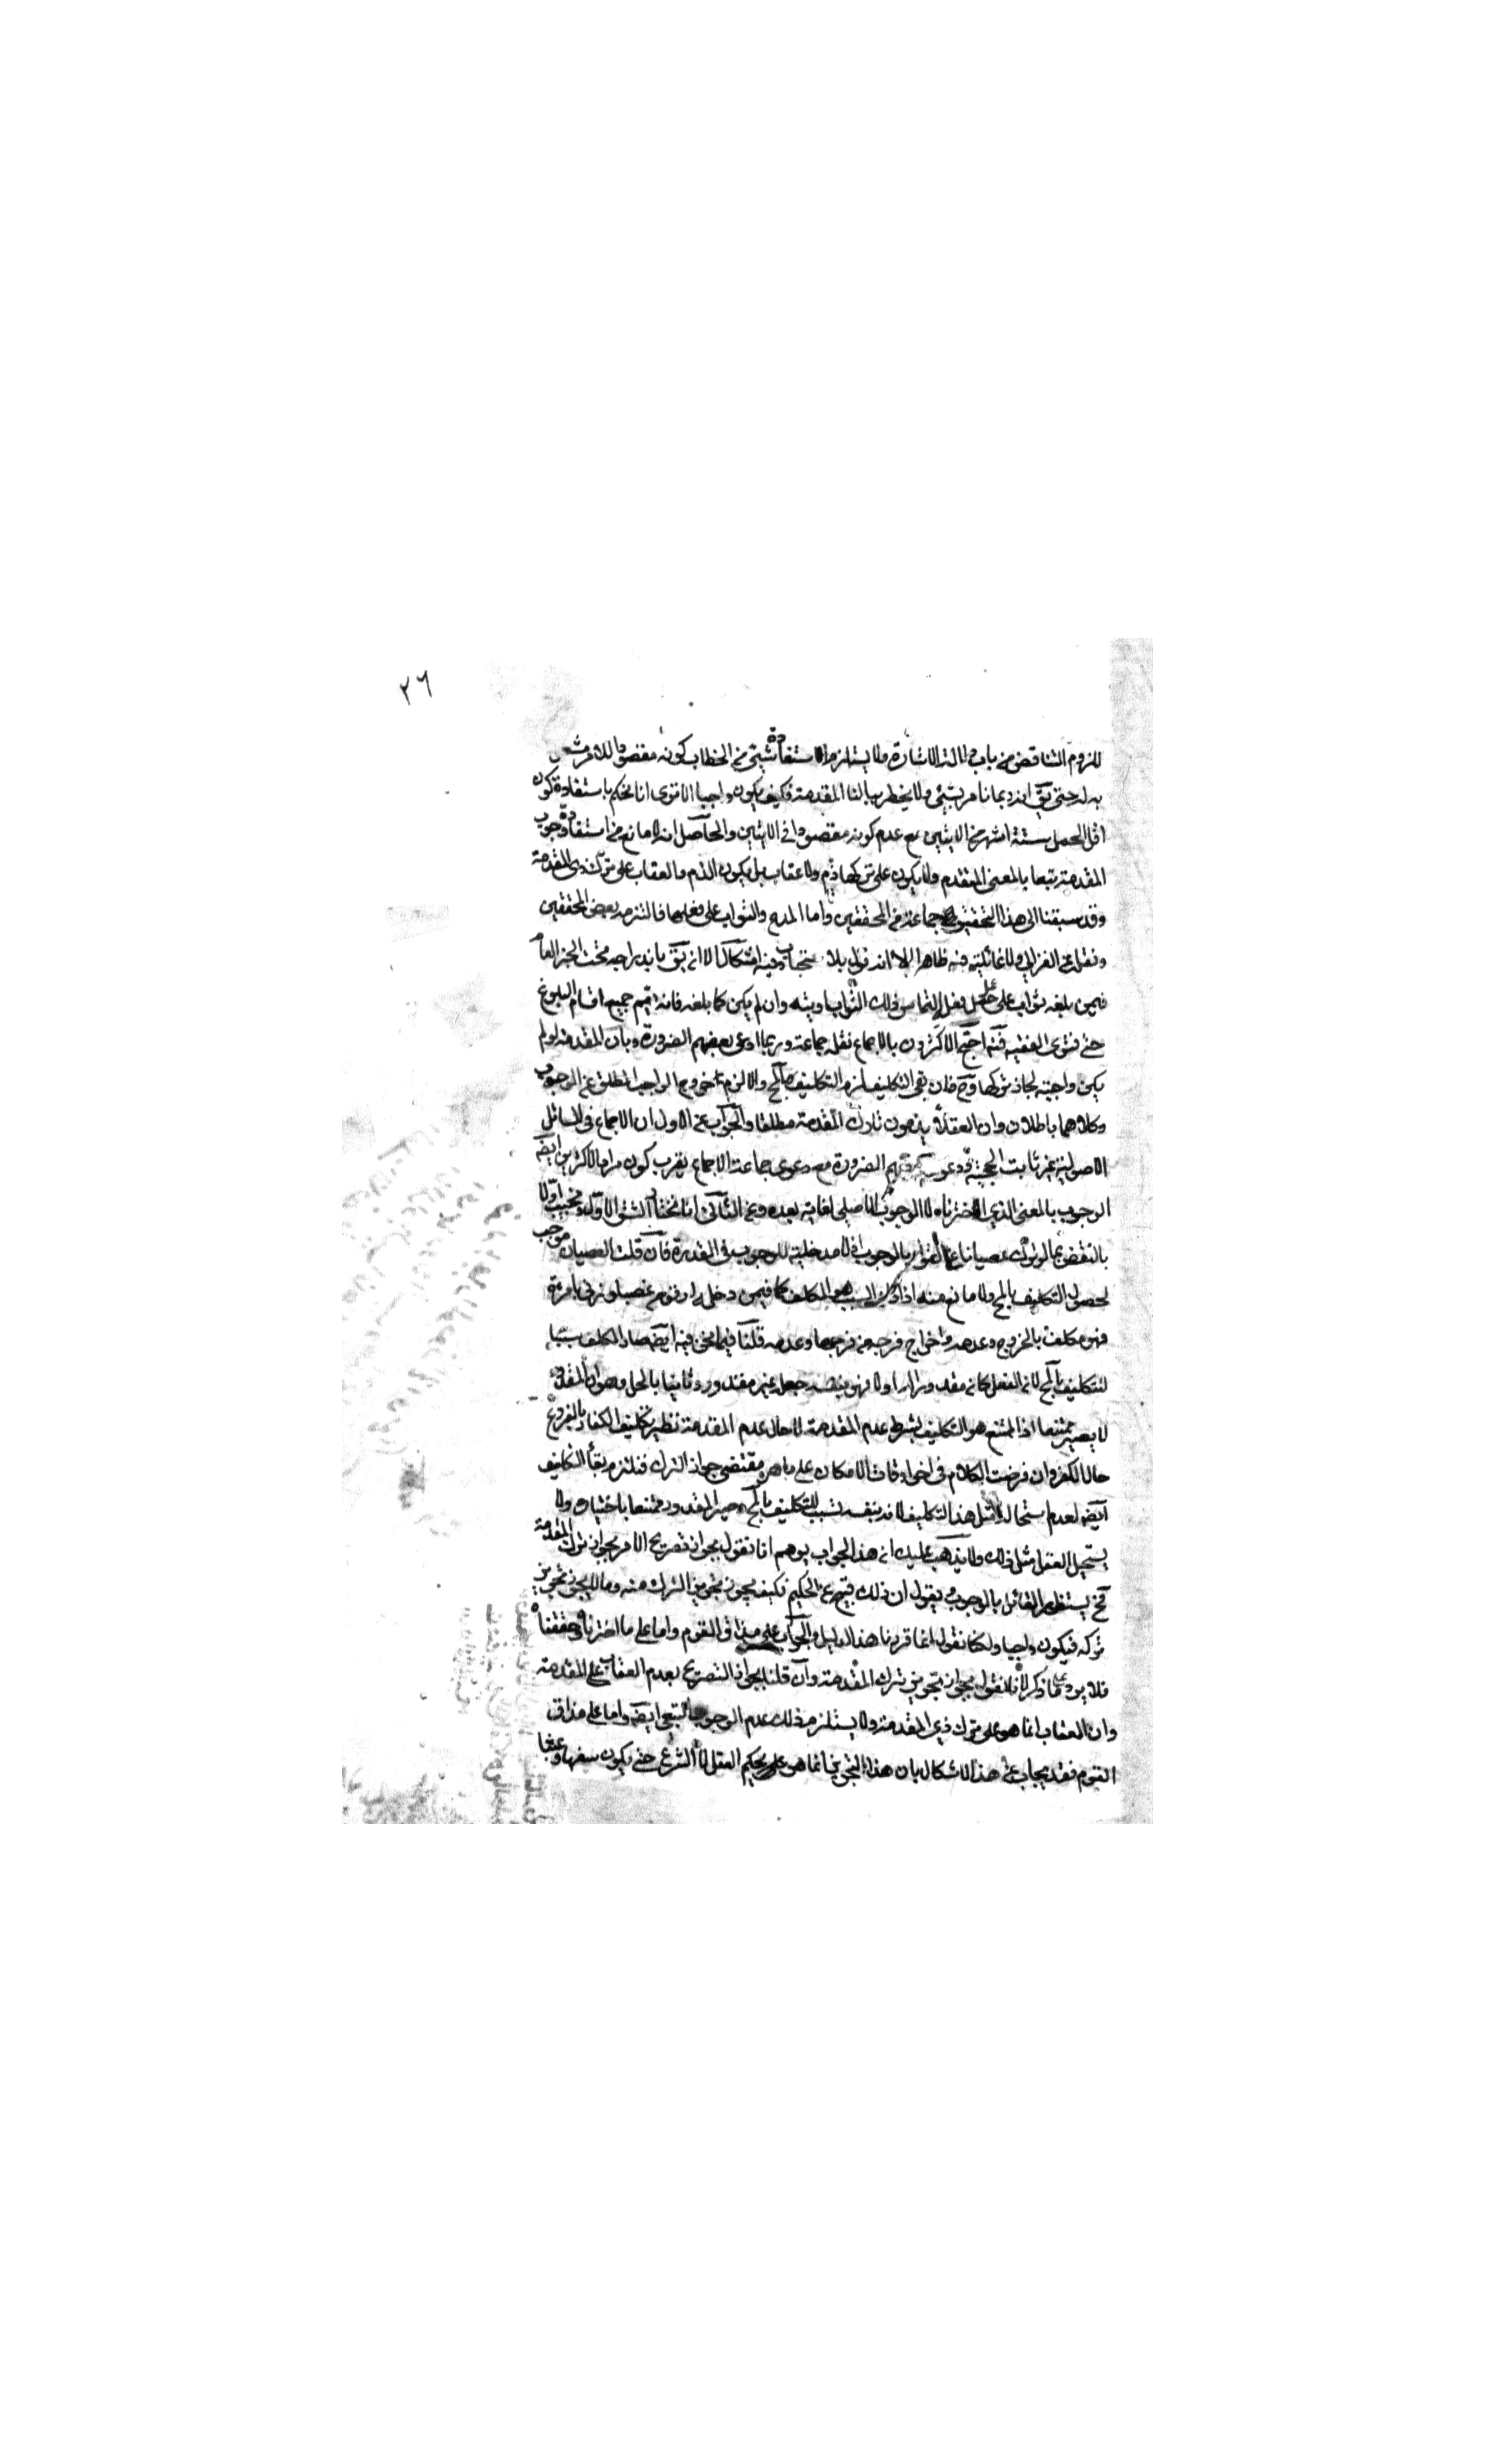 ٢٦
للزوم التناقض من باب دلالة الاشارة ولا يستلزم استفادة شيئ من الخطاب كونه مقصودا للامر مشعر
به له حتى يق انه ربما نامر بشيئ ولا يخطر ببالنا المقدمة فكيف يكون واجبا الا ترى انا نحكم باستفادة كون
اقل الحمل ستة اشهر من الايتين مع عدم كونه مقصودا في الايتين والحاصل انه لا مانع من استفادة وجوب
المقدمة تبعا بالمعنى المتقدم ولا يكون على تركها ذم ولا عقاب بل يكون الذم والعقاب على ترك ذي المقدمة
وقد سبقنا الى هذا التحقيق جماعة من المحققين واما المدح والثواب على فعلها فالتزمه بعض المحققين
ونقله عن الغزالي ولا غائلة فيه ظاهرا الا انه قول بالاستحباب وفيه اشكال الا ان يق باندراجه تحت الخبر العام
فيمن بلغه ثواب على عمل ففعله التماس ذلك الثواب اوتيه وان لم يكن كما بلغه فانه يعم جميع اقسام البلوغ
حتى فتوى الفقيه فته احتج الاكثرون بالاجماع نقله جماعة وربما ادعى بعضهم الضرورة وبان المقدمة لو لم
يكن واجبة لجاز تركها وح فان بقى التكليف لزم التكليف بالمح والا لزم خروج الواجب المطلق عن الوجوب
وكلاهما باطلان وان العقلاء يذمون تارك المقدمة مطلقا والجواب عن الاول ان الاجماع في المسائل
الاصولية غير ثابت الحجية ودعوى بعضهم الضرورة مع دعوى جماعة الاجماع يقرب كون مراد الاكثرين ايضه
الوجوب بالمعنى الذي اخترناه لا الوجوب الاصلي لغاية بعده وعن الثاني انا نختار الشق الاول ونجيب اولا
بالنقض بما لو ترك عصيانا على القول بالوجوب اذ لا مدخلية للوجوب في القدرة فان قلت العصيان موجب
لحصول التكليف بالمح ولا مانع منه اذا كان السبب هو المكلف كما فيمن دخل دار قوم غصبا او زنى بامرءة
فهو مكلف بالخروج وعدمه واخراج فرجه من فرجها وعدمه قلنا فيما نحن فيه ايضه صار المكلف سببا
لتكليف بالمح لان الفعل كان مقدورا له اولا فهو بنفسه جعله غير مقدور وثانيا بالحل وهو ان المقدور
لا يصير ممتنعا اذ الممتنع هو التكليف بشرط عدم المقدمة لا حال عدم المقدمة نظير تكليف الكفار بالفروع
حال الكفر وان فرضت الكلام في اخر اوقات الامكان على ما هو مقتضى جواز الترك فنلتزم بقاء التكليف
ايضه لعدم استحالة مثل هذا التكليف لانه بنفسه تسبب للتكليف بالمح وصير المقدور ممتنعا باختياره ولا
يستحيل العقل مثل ذلك ولا يذهب عليك ان هذا الجواب يوهم انا نقول بجواز تصريح الامر بجواز ترك المقدمة
فح يستظهر القائل بالوجوب ويقول ان ذلك قبيح عن الحكيم فكيف يجوز تجويز الترك منه وما لا يجوز تجويز
تركه فيكون واجبا ولكنا نقول انما قررنا هذا الدليل والجواب على مذاق القوم واما على ما اخترناه وحققناه
فلا يرد ما ذكر لانا لا نقول بجواز تجويز ترك المقدمة وان قلنا بجواز التصريح بعدم العقاب على المقدمة
وان العقاب انما هو على ترك ذي المقدمة ولا يستلزم ذلك عدم الوجوب التبعي ايضه واما على مذاق
القوم فقد يجاب عن هذا الاشكال بان هذا التجويز انما هو بحكم العقل لا الشرع حتى يكون سفها وعبثا